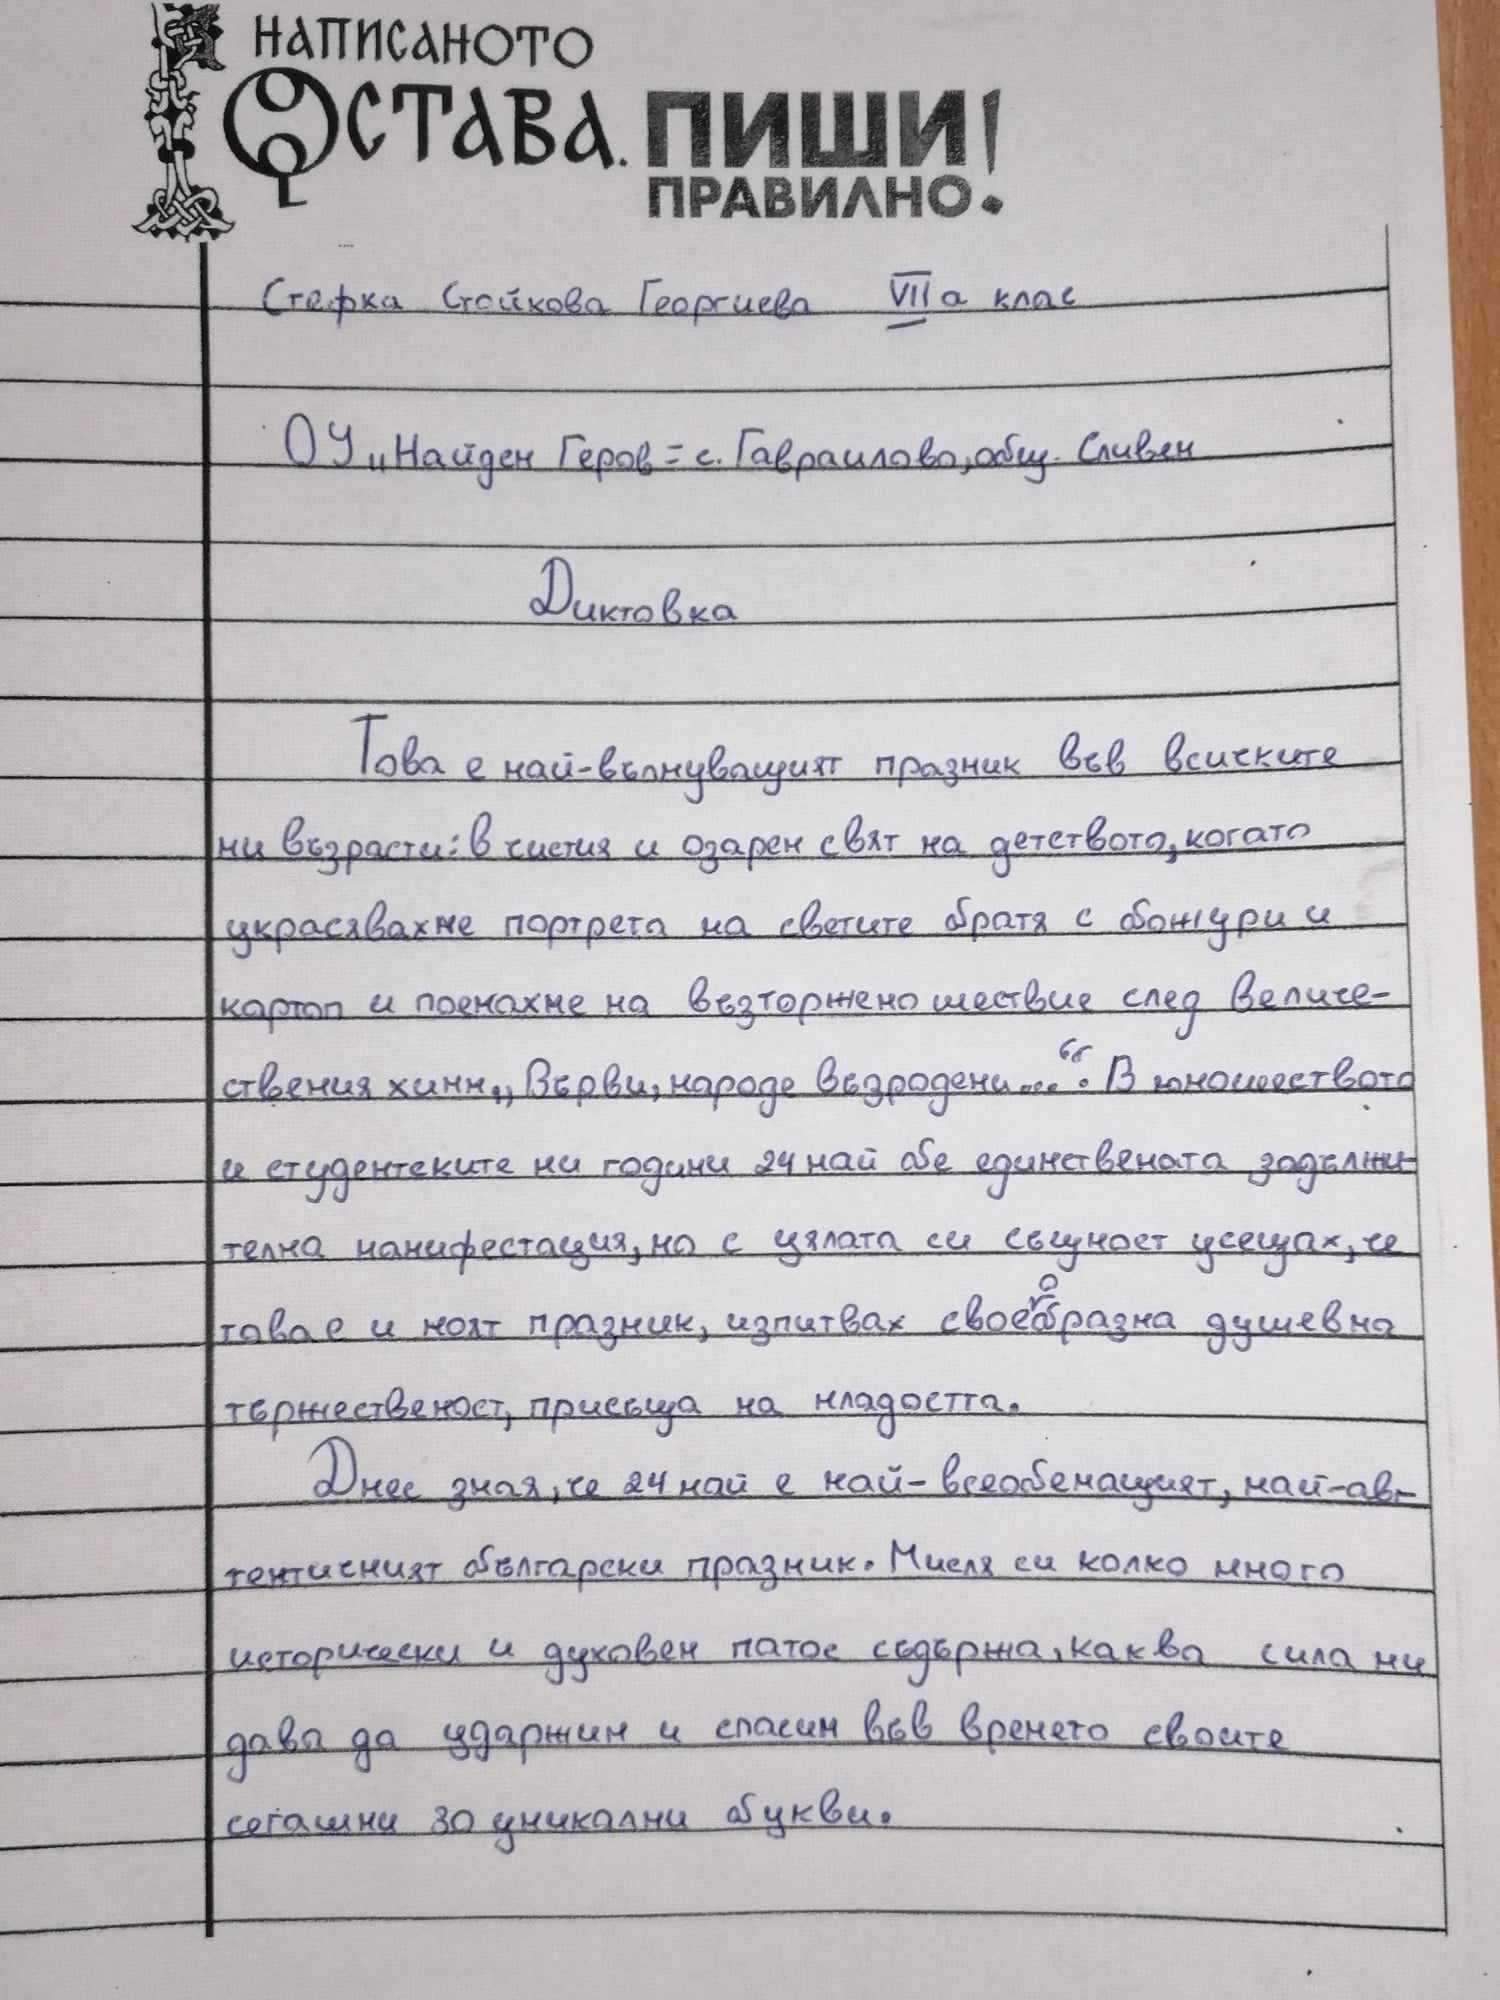 НАПИСАНОТО
ОСТАВА. ПИШИ
ПРАВИЛНО!
Стефка Стойкова Георгиева VII а клас
ОУ „Найден Геров“ с. Гавраилово, общ. Сливен
Диктовка
Това е най-вълнуващият празник във всичките
ни възрасти: в чистия и озарен свят на детството, когато
украсявахме портрета на светите братя с божури и
картоп и поемахме на възторжено шествие след величе-
ствения химн „Върви, народе възродени...“. В юношеството
и студентските ни години 24 май бе единствената задължи-
телна манифестация, но с цялата си същност усещах, че
това е и моят празник, изпитвах своеобразна душевна
тържественост, присъща на младостта.
Днес зная, че 24 май е най-всеобемащият, най-ав-
тентичният български празник. Мисля си колко много
исторически и духовен патос съдържа, каква сила ни
дава да удържим и спасим във времето своите
сегашни 30 уникални букви.